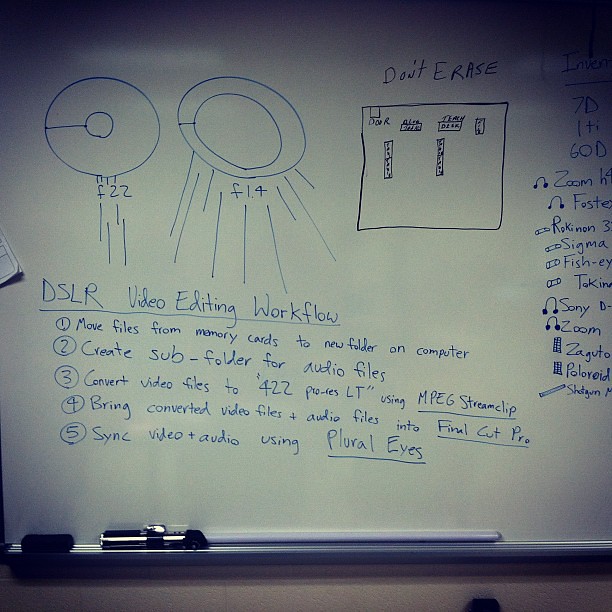 Don't ERASE
DOOR
TEACH
DESK
f22
f1.4
DSLR Video Editing Workflow
① Move files from memory cards to new folder on computer
② Create sub-folder for audio files
③ Convert video files to "422 pro-res LT" using MPEG Streamclip
④ Bring converted video files + audio files into Final Cut Pro
⑤ Sync video + audio using Plural Eyes
Inven
7D
1ti
60D
Zoom h4
Foste
Rokinon 3
Sigma
Fish-ey
Tokin
Sony D-
Zoom
Zaguto
Poloroid
Shotgun M